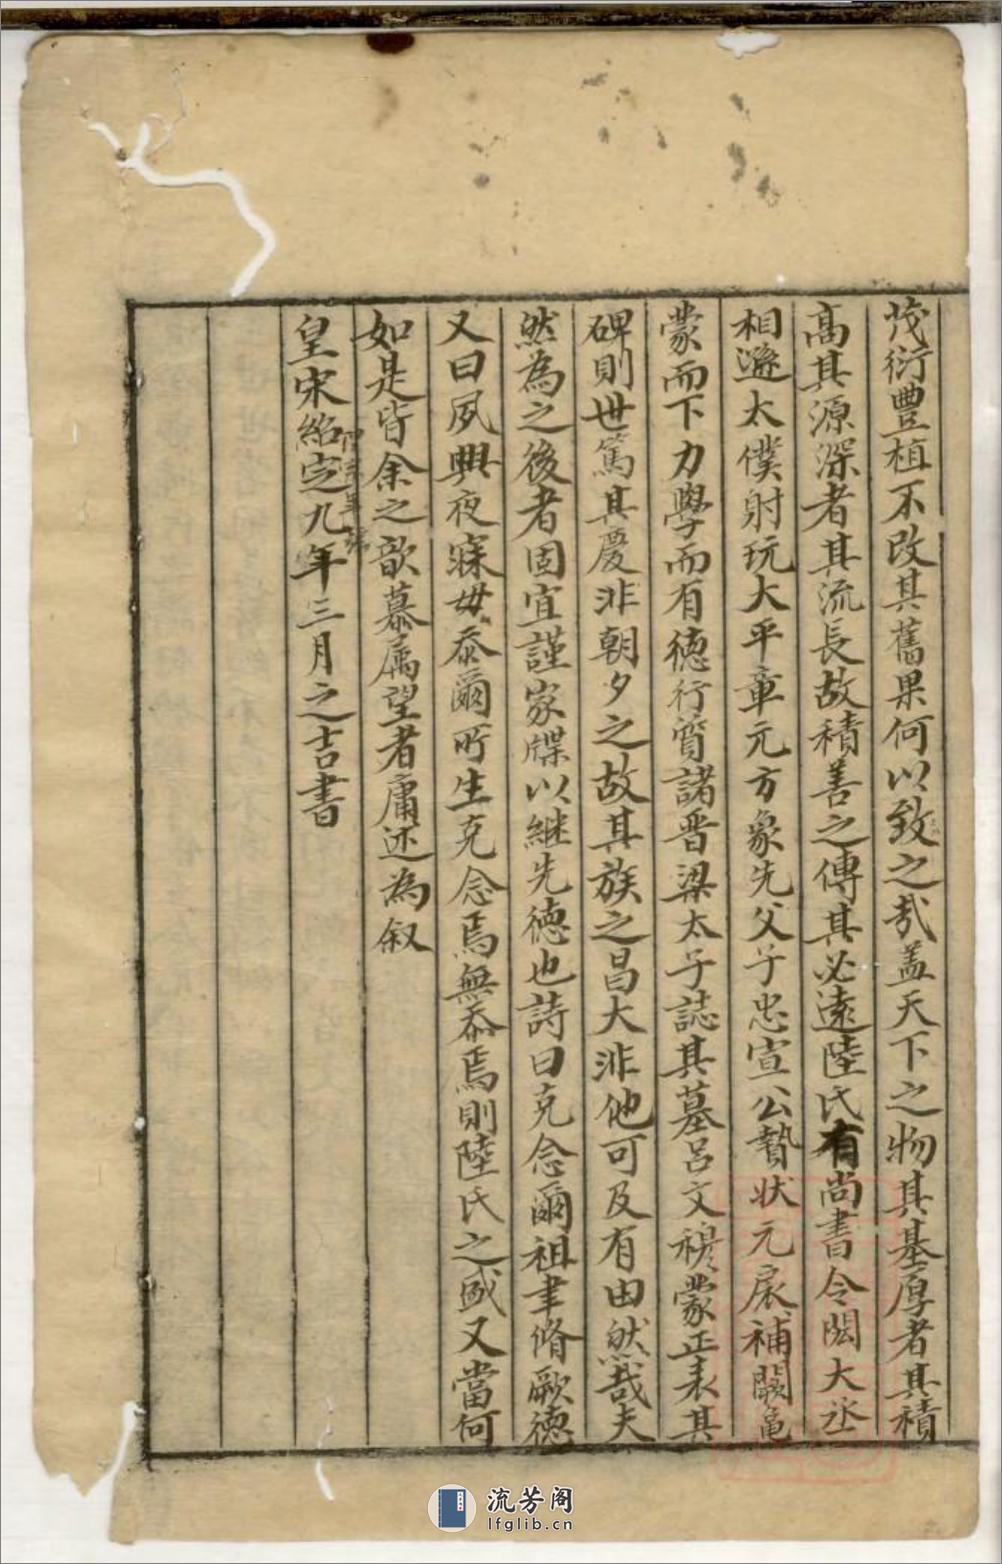 茂衍豐植不改其舊果何以致之哉盖天下之物其基厚者其積
高其源深者其流長故積善之傳其必遠陸氏有尚書令閎大丞
相遜太僕射玩大平章元方象先父子忠宣公贄狀元扆補闕龜
蒙而下力學而有德行質諸晋梁太子誌其墓呂文穆蒙正表其
碑則世篤其慶非朝夕之故其族之昌大非他可及有由然哉夫
然為之後者固宜謹家牒以継先德也詩曰克念爾祖聿脩厥德
又曰夙興夜寐毋忝爾所生克念焉無忝焉則陸氏之盛又當何
如是皆余之歆慕属望者庸述為叙
皇宋紹定九年三月之吉書
流芳阁
lfglib.cn